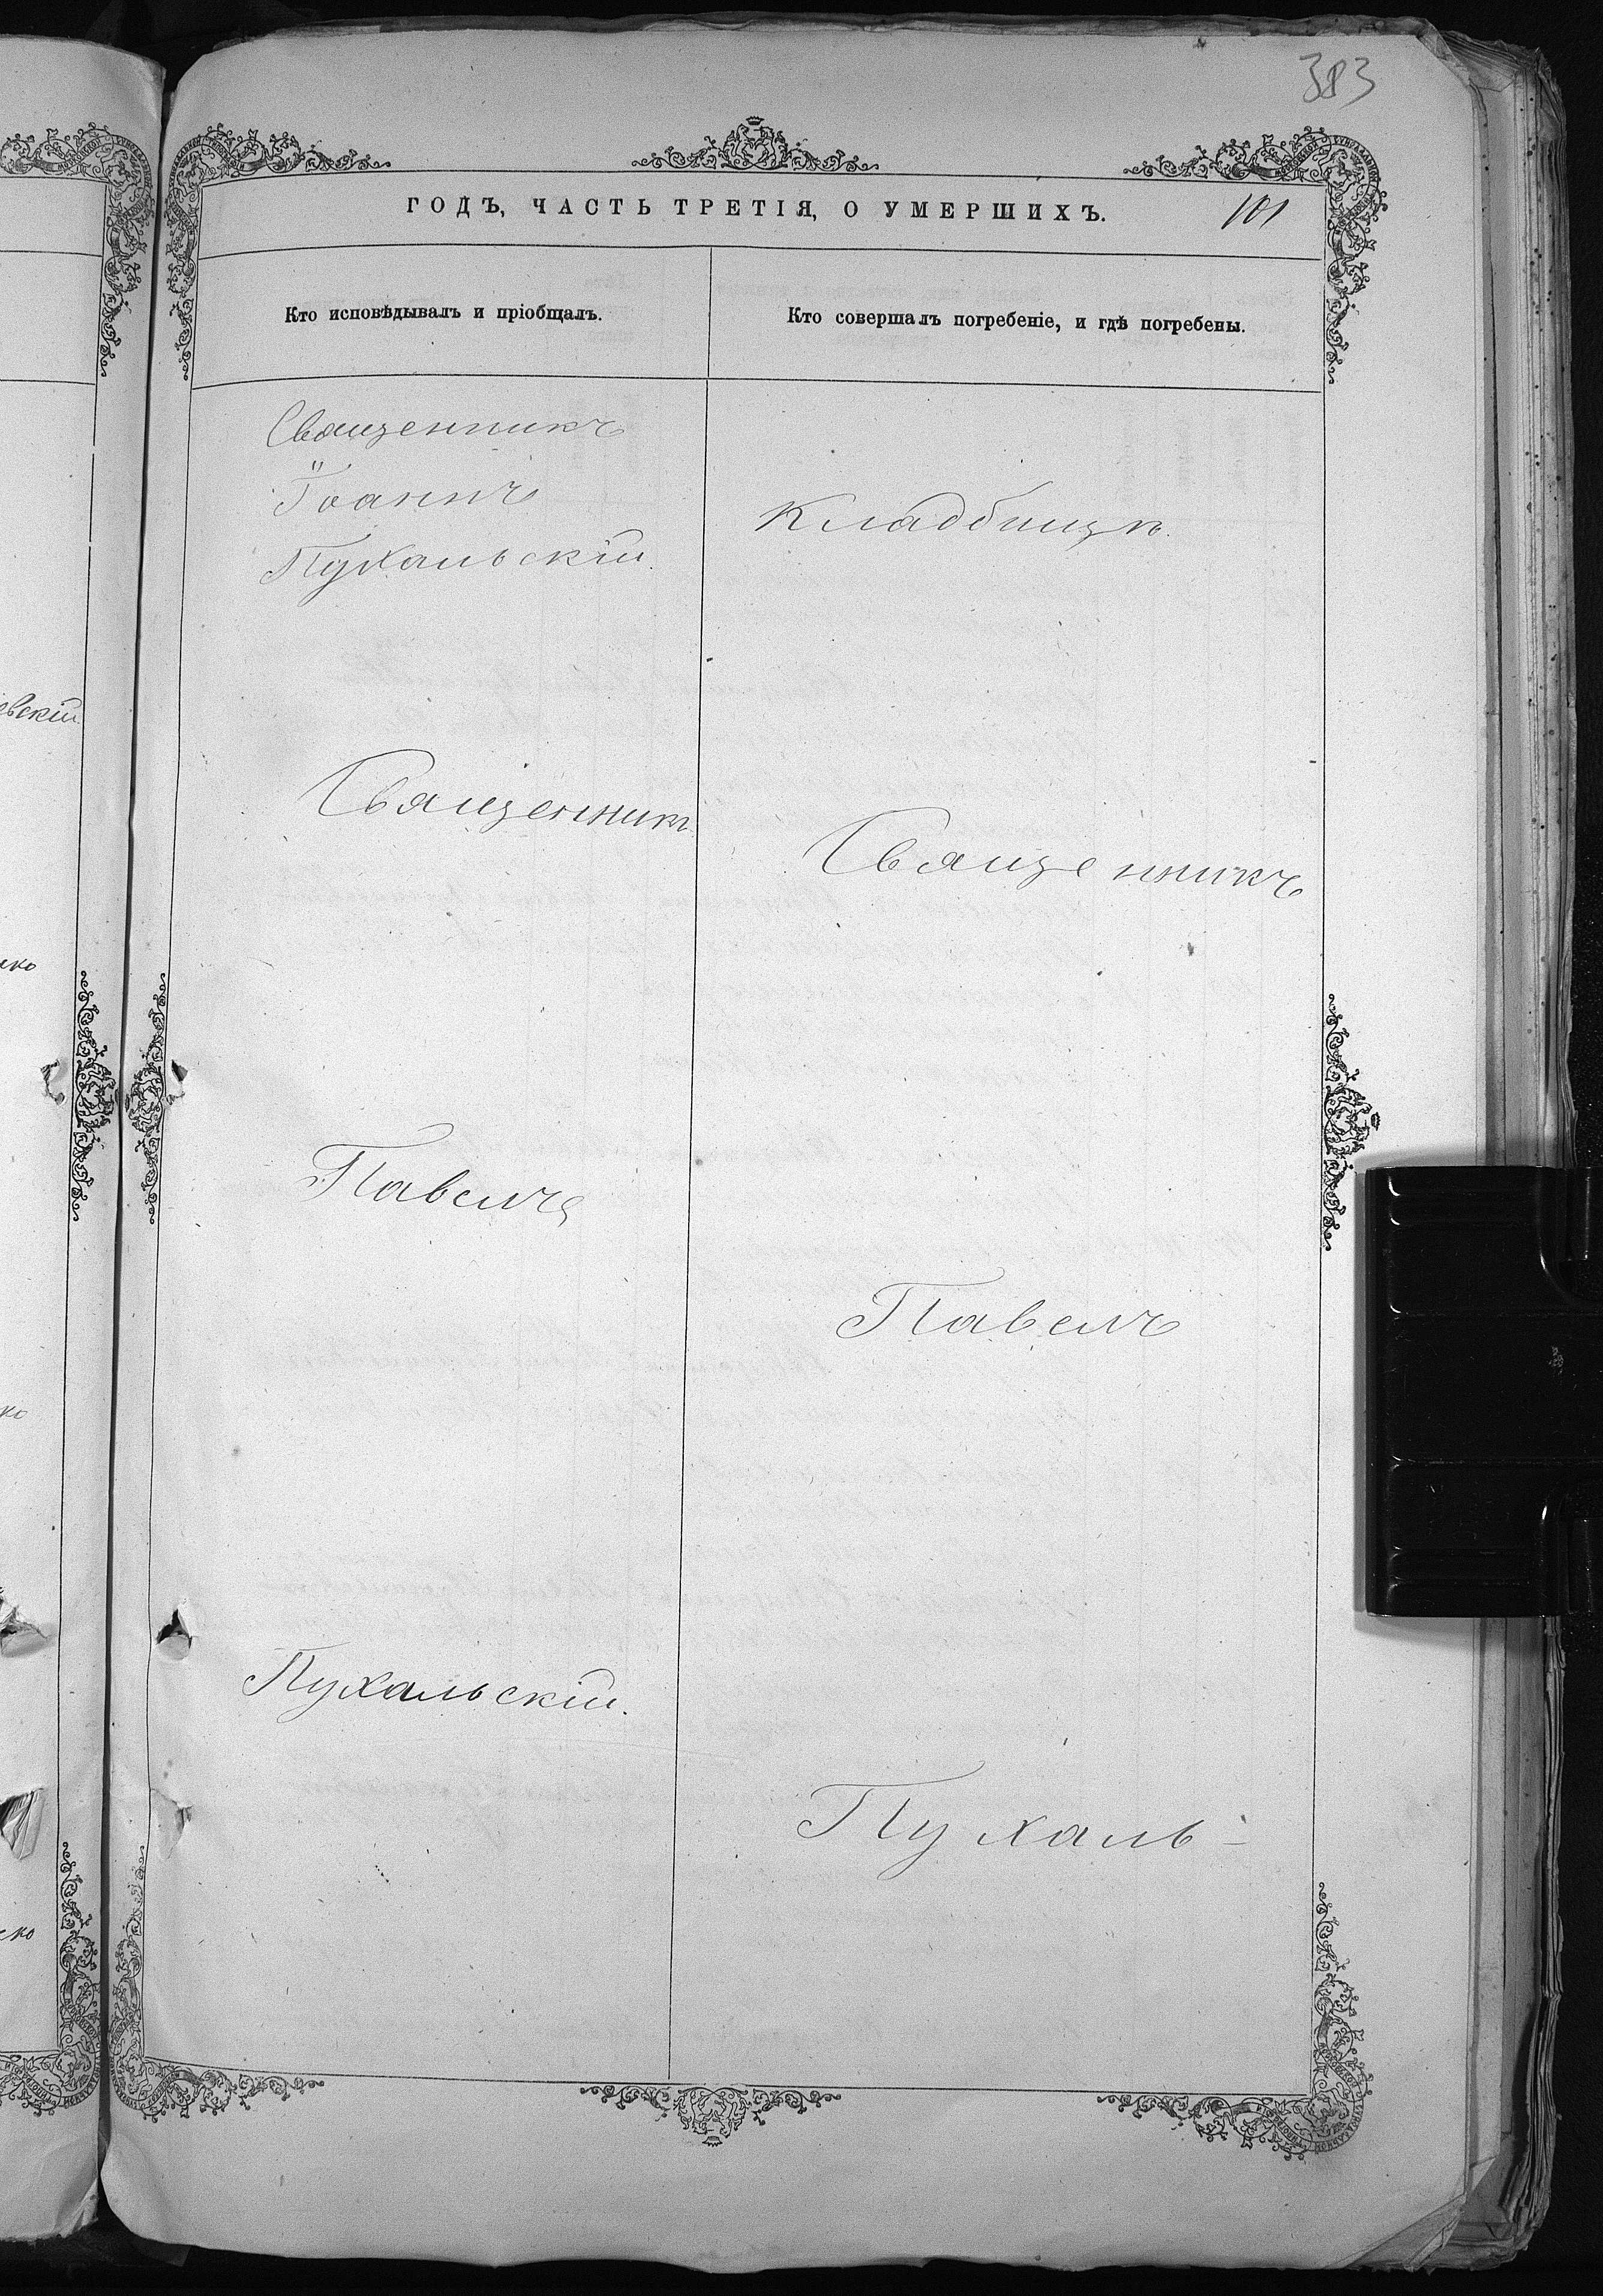 383
ГОДЪ, ЧАСТЬ ТРЕТІЯ, О УМЕРШИХЪ.
101
Кто исповѣдывалъ и пріобщалъ.
Кто совершалъ погребеніе, и гдѣ погребены.
Священникъ
Іоаннъ
Пухальскій.
Священникъ
Павелъ
Пухальскій.
Кладбищѣ.
Священникъ
Павелъ
Пухаль-